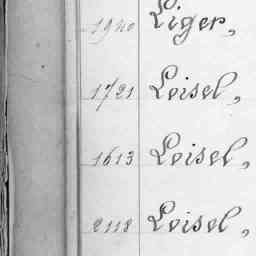 1940 Liger,
1721 Loisel,
1613 Loisel,
2118 Loisel,